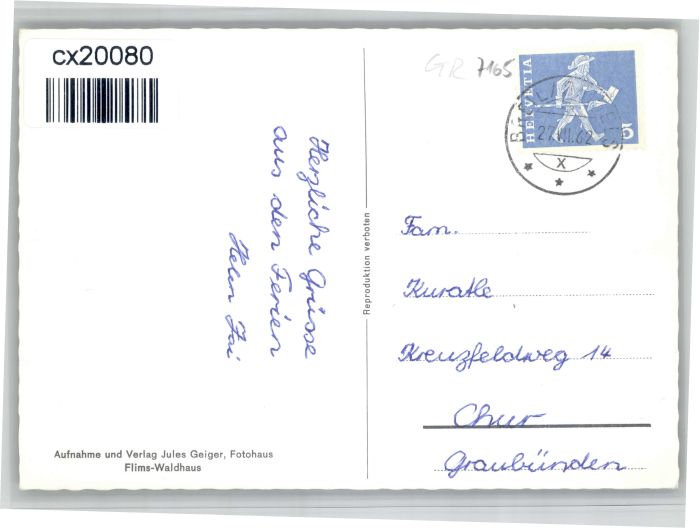 cx20080
GR 7165
HELVETIA
5
X
Herzliche Grüsse
aus den Ferien
Reproduktion verboten
Fam.
Kuratle
Kreuzfeldweg 14
Chur
Graubünden
Aufnahme und Verlag Jules Geiger, Fotohaus
Flims-Waldhaus